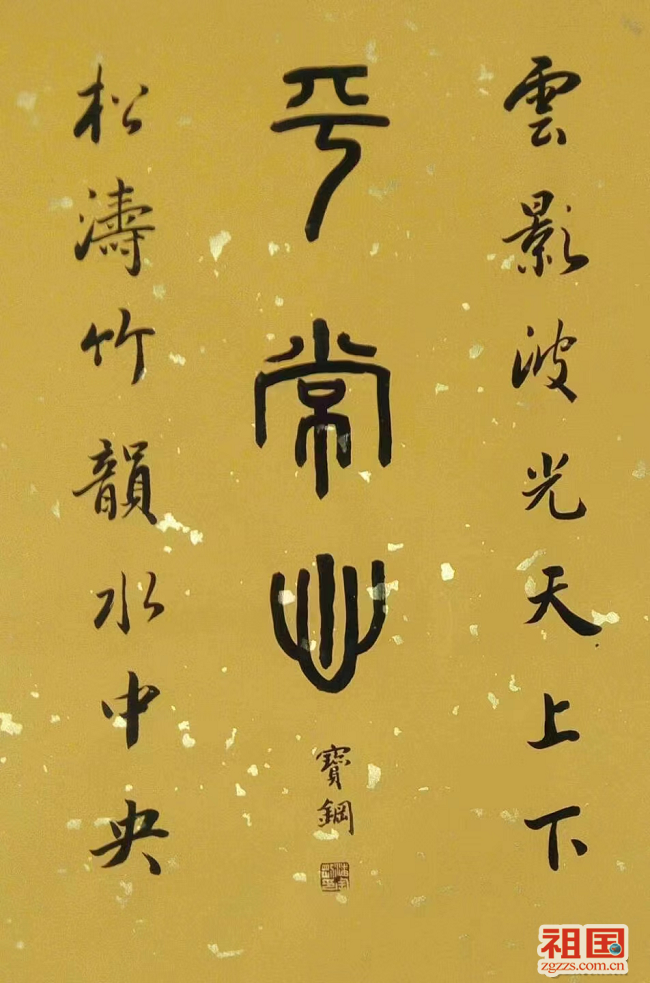 雲影波光天上下
平常心
寶鋼
松濤竹韻水中央
祖国
zgzzs.com.cn